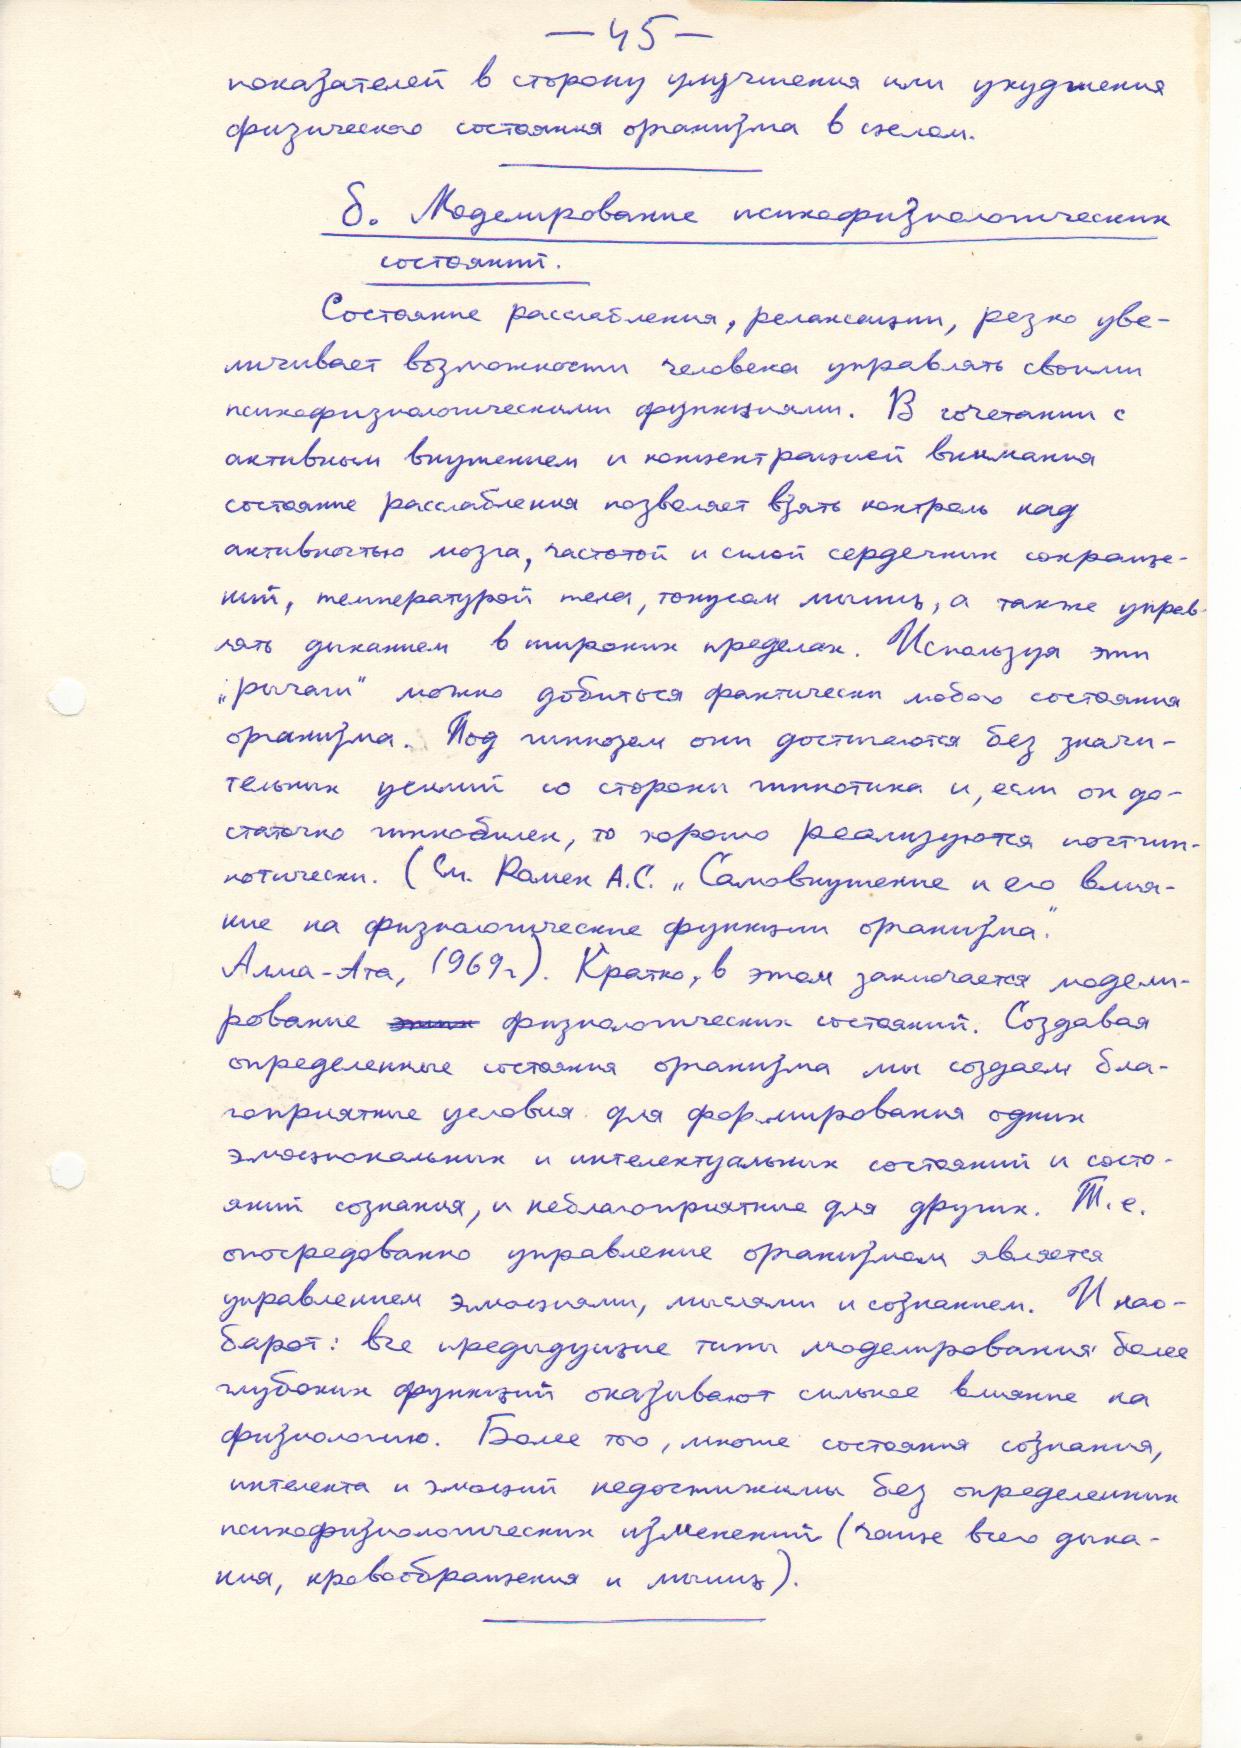 — 45 —
показателей в сторону улучшения или ухудшения
физического состояния организма в целом.
б. Моделирование психофизиологических
состояний.
Состояние расслабления, релаксации, резко уве-
личивает возможности человека управлять своими
психофизиологическими функциями. В сочетании с
активным внушением и концентрацией внимания
состояние расслабления позволяет взять контроль над
активностью мозга, частотой и силой сердечных сокраще-
ний, температурой тела, тонусом мышц, а также управ-
лять дыханием в широких пределах. Используя эти
„рычаги“ можно добиться фактически любого состояния
организма. Под гипнозом они достигаются без значи-
тельных усилий со стороны гипнотика и, если он до-
статочно гипнобилен, то хорошо реализуются постгип-
нотически. (См. Ромен А.С. „Самовнушение и его влия-
ние на физиологические функции организма.“
Алма-Ата, 1969г). Кратко, в этом заключается модели-
рование физиологических состояний. Создавая
определенные состояния организма мы создаем бла-
гоприятные условия для формирования одних
эмоциональных и интелектуальных состояний и состо-
яний сознания, и неблагоприятные для других. Т.е.
опосредованно управление организмом является
управлением эмоциями, мыслями и сознанием. И нао-
барот: все предыдущие типы моделирования более
глубоких функций оказывают сильное влияние на
физиологию. Более того, многие состояния сознания,
интелекта и эмоций недостижимы без определенных
психофизиологических изменений (чаще всего дыха-
ния, кровообращения и мышц).